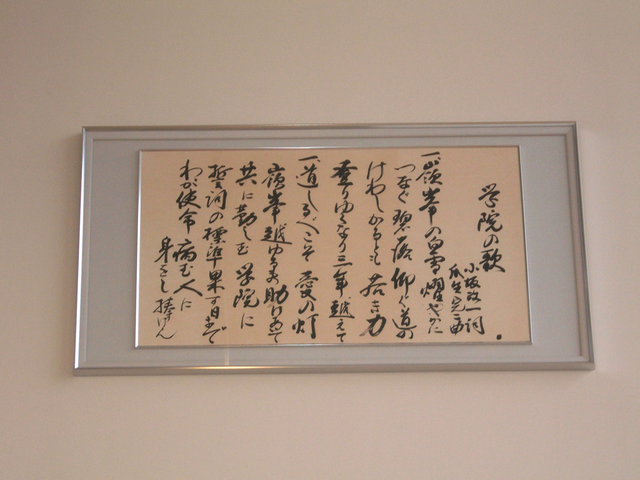 学院の歌
小坂政一 詞
瓜生完 曲
一、嶺峯の白雪 耀やかに
つなぐ碧落 仰ぐ道の
けわしかるとも 若き力
登りゆくなり 三年越えて
一、道しるべこそ 愛の灯
嶺峯越ゆるを 助けあて
共に励む 学院に
誓詞の標準 果す日まで
わが使命 病む人に
身をし捧げん